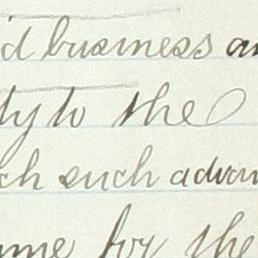 d business a
ty to the
ch such advan
ame for the